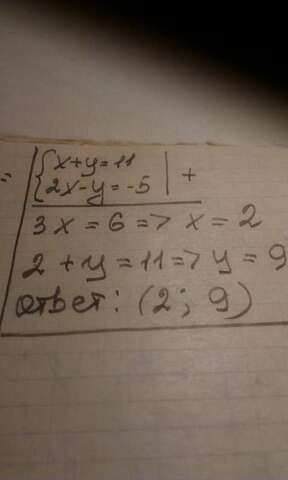 = { x+y=11
{ 2x-y=-5 | +
3x=6=>x=2
2+y=11=>y=9
ответ: (2; 9)